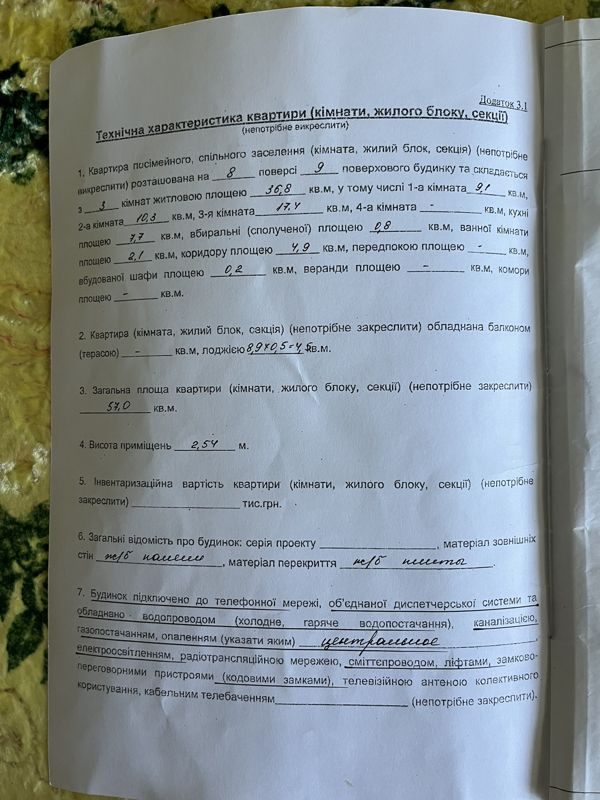 Додаток 3.1
Технічна характеристика квартири (кімнати, жилого блоку, секції)
(непотрібне викреслити)
1. Квартира посімейного, спільного заселення (кімната, жилий блок, секція) (непотрібне
викреслити) розташована на 8 поверсі 9 поверхового будинку та складається
з 3 кімнат житловою площею 36,8 кв.м, у тому числі 1-а кімната 9,1 кв.м,
2-а кімната 10,3 кв.м, 3-я кімната 17,4 кв.м, 4-а кімната - кв.м, кухні
площею 7,7 кв.м, вбиральні (сполученої) площею 0,8 кв.м, ванної кімнати
площею 2,1 кв.м, коридору площею 4,9 кв.м, передпокою площею - кв.м,
вбудованої шафи площею 0,2 кв.м, веранди площею - кв.м, комори
площею - кв.м.
2. Квартира (кімната, жилий блок, секція) (непотрібне закреслити) обладнана балконом
(терасою) - кв.м, лоджією 8,9х0,5=4,5 кв.м.
3. Загальна площа квартири (кімнати, жилого блоку, секції) (непотрібне закреслити)
57,0 кв.м.
4. Висота приміщень 2,54 м.
5. Інвентаризаційна вартість квартири (кімнати, жилого блоку, секції) (непотрібне
закреслити) тис.грн.
6. Загальні відомість про будинок: серія проекту , матеріал зовнішніх
стін ж/б панели , матеріал перекриття ж/б плиты .
7. Будинок підключено до телефонної мережі, об'єднаної диспетчерської системи та
обладнано водопроводом (холодне, гаряче водопостачання), каналізацією,
газопостачанням, опаленням (указати яким) центральное ,
електроосвітленням, радіотрансляційною мережею, сміттєпроводом, ліфтами, замково-
переговорними пристроями (кодовими замками), телевізійною антеною колективного
користування, кабельним телебаченням (непотрібне закреслити).